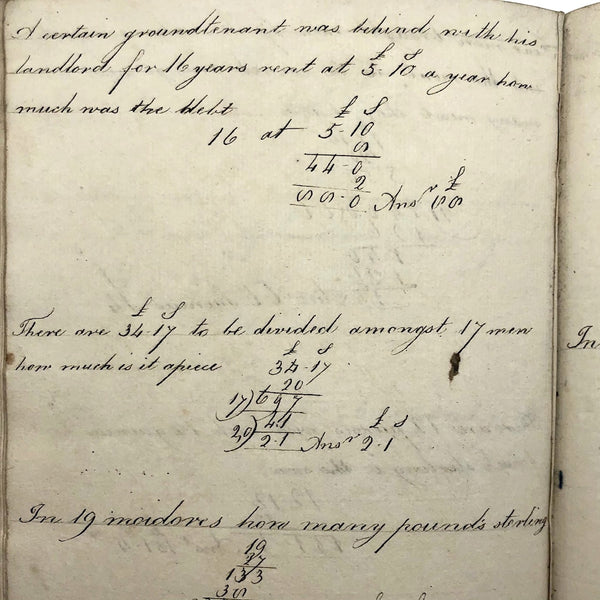 A certain groundtenant was behind with his
£ S
landlord for 16 years rent at 5-10 a year how
much was the debt
£ S
16 at 5-10
8
44-0
2
£
88-0 Ansr 88
£ S
There are 34-17 to be divided amongst 17 men
how much is it apiece
£ S
34-17
20
17) 697
20) 41
£ S
2-1 Ansr 2-1
In 19 moidores how many pounds sterling
19
27
133
38
In